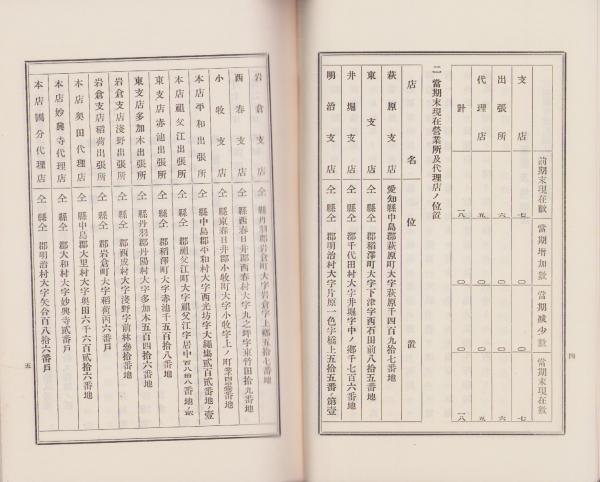 前期末現在數 當期增加數 當期減少數 當期末現在數
支店 七 〇 〇 七
出張所 六 〇 〇 六
代理店 五 〇 〇 五
計 一八 〇 〇 一八
二 當期末現在營業所及代理店ノ位置
店名 位置
萩原支店 愛知縣中島郡萩原町大字萩原千四百九拾七番地
東支店 仝縣仝郡稻澤町大字下津字西石田前八拾五番地
井堀支店 仝縣仝郡千代田村大字井堀字中ノ鄕千七百六番地
明治支店 仝縣仝郡明治村大字片原一色字橋上五拾五番ノ第壹
四
岩倉支店 仝縣丹羽郡岩倉町大字岩倉字鄕五拾七番地
西春支店 仝縣西春日井郡西春村大字九之坪字東竹田拾九番地
小牧支店 仝縣東春日井郡小牧町大字小牧字上ノ町
本店平和出張所 仝縣中島郡平和村大字西光坊字大繩塲貳百貳番地ノ壹
本店祖父江出張所 仝縣仝郡祖父江町大字祖父江字居中百八拾八番地ノ
東支店赤池出張所 仝縣仝郡稻澤町大字赤池千五百拾八番地
東支店多加木出張所 仝縣丹羽郡丹陽村大字多加木五百四拾六番地
岩倉支店淺野出張所 仝縣仝郡西成村大字淺野字前林參拾番地
岩倉支店稻荷出張所 仝縣仝郡岩倉町大字稻荷丙六番戶
本店奧田代理店 仝縣中島郡大里村大字奧田六千六百貳拾六番地
本店妙興寺代理店 仝縣仝郡大和村大字妙興寺貳番戶
本店國分代理店 仝縣仝郡明治村大字矢合百八拾六番戶
五